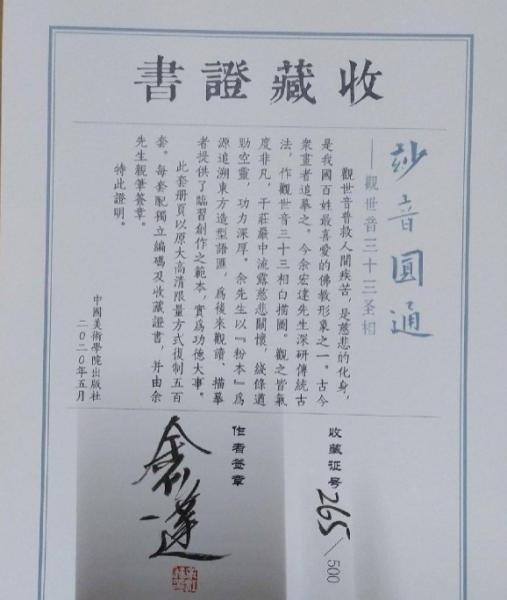 收藏證書
妙音圓通
——觀世音三十三圣相
觀世音普救人間疾苦，是慈悲的化身，
是我國百姓最喜愛的佛教形象之一。古今
衆畫者追摹之。今余宏達先生深研傳統古
法，作觀世音三十三相白描圖。觀之皆氣
度非凡，于莊嚴中流露慈悲關懷，綫條遒
勁空靈，功力深厚。余先生以『粉本』爲
源追溯東方造型語匯，爲後來觀讀、描摹
者提供了臨習創作之範本，實爲功德大事。
此套册頁以原大高清限量方式復制五百
套。每套配獨立編碼及收藏證書，并由余
先生親筆簽章。
特此證明。
中國美術學院出版社
二〇二〇年五月
收藏证号 265/500
作者签章